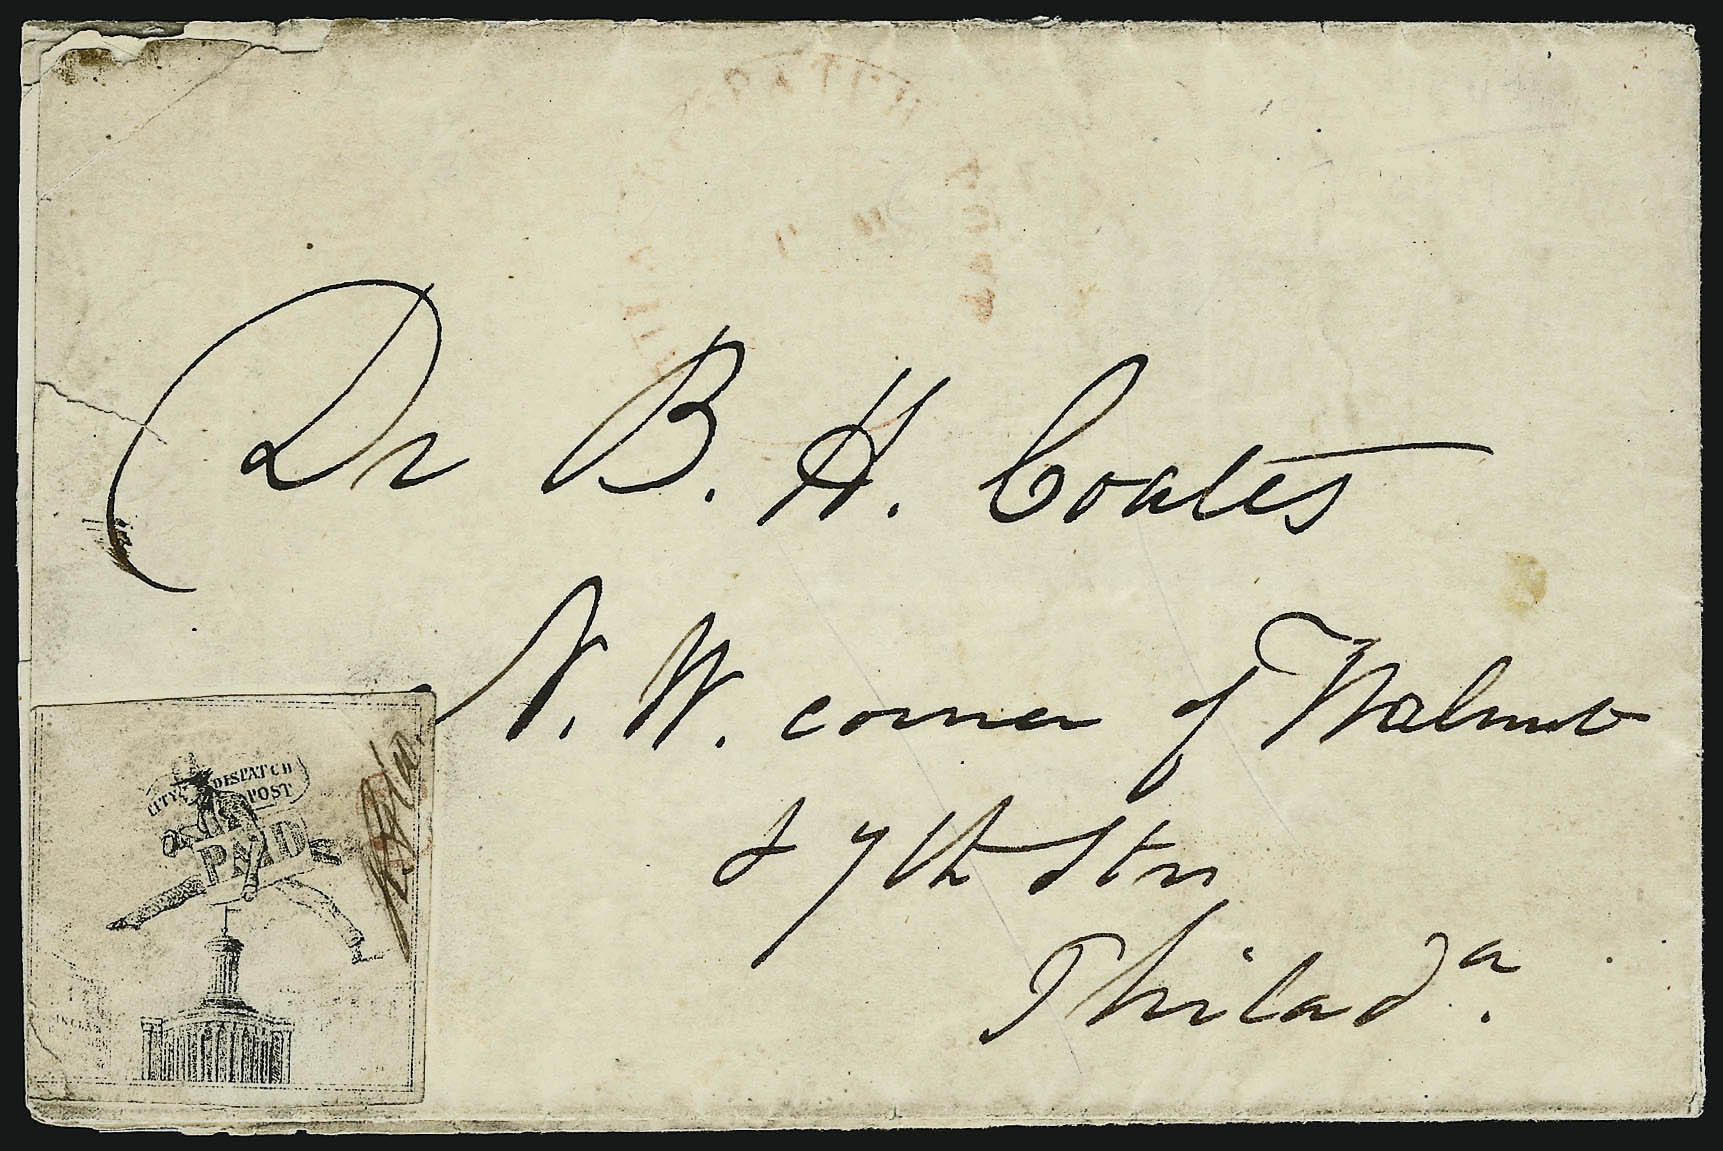 Dr B. H. Coates
N. W. corner of Walnut
& 7th Str
Philada.
CITY DESPATCH
POST
PAID